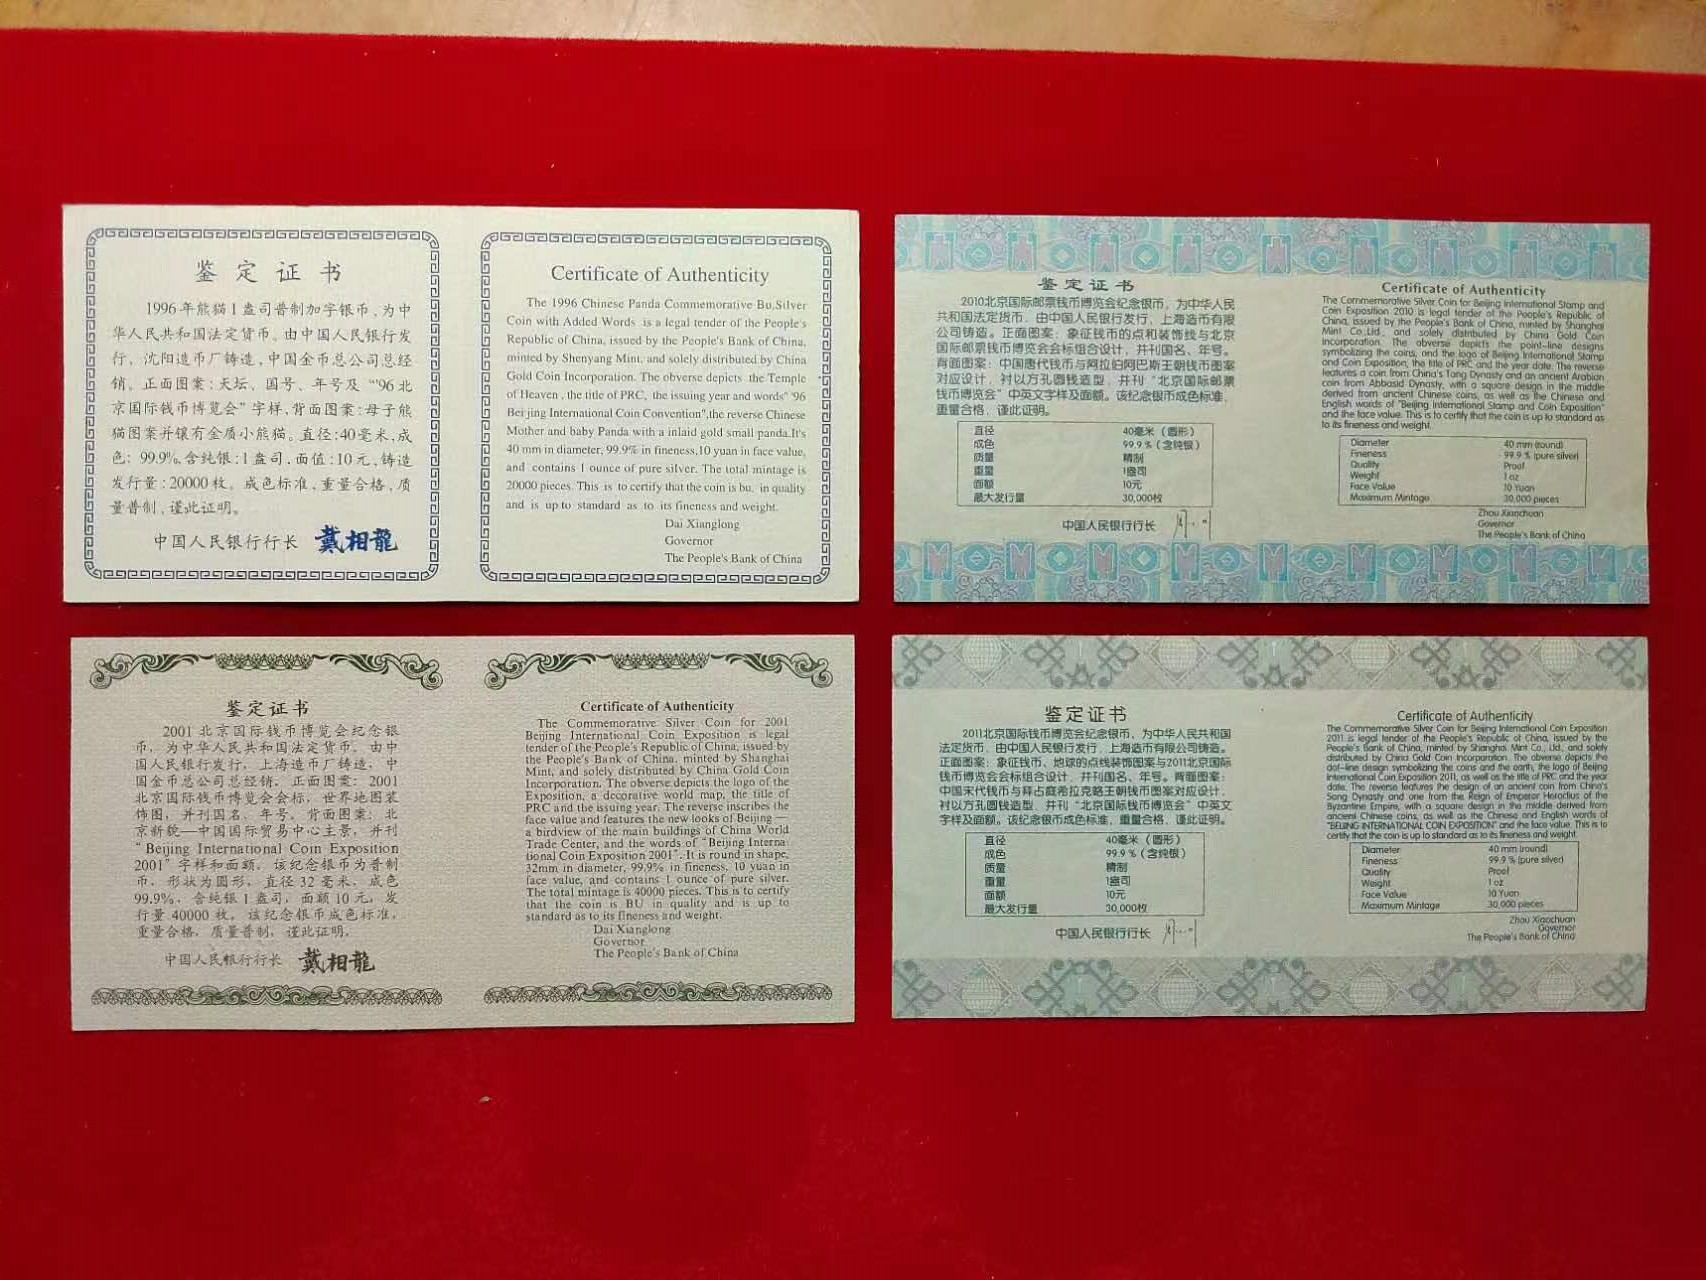 鉴定证书
1996年熊猫1盎司普制加字银币,为中
华人民共和国法定货币。由中国人民银行发
行,沈阳造币厂铸造,中国金币总公司总经
销。正面图案:天坛、国号、年号及“'96北
京国际钱币博览会”字样,背面图案:母子熊
猫图案并镶有金质小熊猫。直径:40毫米,成
色:99.9%,含纯银:1盎司,面值:10元,铸造
发行量:20000枚。成色标准,重量合格,质
量普制,谨此证明。
中国人民银行行长 戴相龍
Certificate of Authenticity
The 1996 Chinese Panda Commemorative Bu,Silver
Coin with Added Words is a legal tender of the People's
Republic of China, issued by the People's Bank of China,
minted by Shenyang Mint, and solely distributed by China
Gold Coin Incorporation. The obverse depicts the Temple
of Heaven , the title of PRC, the issuing year and words" '96
Beijing International Coin Convention",the reverse Chinese
Mother and baby Panda with a inlaid gold small panda.It's
40 mm in diameter, 99.9% in fineness,10 yuan in face value,
and contains 1 ounce of pure silver. The total mintage is
20000 pieces. This is to certify that the coin is bu. in quality
and is up to standard as to its fineness and weight.
Dai Xianglong
Governor
The People's Bank of China
鉴定证书
2010北京国际邮票钱币博览会纪念银币,为中华人民
共和国法定货币,由中国人民银行发行,上海造币有限
公司铸造。正面图案:象征钱币的点和装饰线与北京
国际邮票钱币博览会会标组合设计,并刊国名、年号。
背面图案:中国唐代钱币与阿拉伯阿巴斯王朝钱币图案
对应设计,衬以方孔圆钱造型,并刊“北京国际邮票
钱币博览会”中英文字样及面额。该纪念银币成色标准,
重量合格,谨此证明。
直径 40毫米(圆形)
成色 99.9%(含纯银)
质量 精制
重量 1盎司
面额 10元
最大发行量 30,000枚
中国人民银行行长
Certificate of Authenticity
The Commemorative Silver Coin for Beijing International Stamp and
Coin Exposition 2010 is legal tender of the People's Republic of
China, issued by the People's Bank of China, minted by Shanghai
Mint Co.,Ltd., and solely distributed by China Gold Coin
Incorporation. The obverse depicts the point-line designs
symbolizing the coins, and the logo of Beijing International Stamp
and Coin Exposition, the title of PRC and the year date. The reverse
features a coin from China's Tang Dynasty and an ancient Arabian
coin from Abbasid Dynasty, with a square design in the middle
derived from ancient Chinese coins, as well as the Chinese and
English words of "Beijing International Stamp and Coin Exposition"
and the face value. This is to certify that the coin is up to standard as
to its fineness and weight.
Diameter 40 mm (round)
Fineness 99.9 % (pure silver)
Quality Proof
Weight 1 oz
Face Value 10 Yuan
Maximum Mintage 30,000 pieces
Zhou Xiaochuan
Governor
The People's Bank of China
鉴定证书
2001北京国际钱币博览会纪念银
币,为中华人民共和国法定货币。由中
国人民银行发行,上海造币厂铸造,中
国金币总公司总经销。正面图案:2001
北京国际钱币博览会会标,世界地图装
饰图,并刊国名、年号。背面图案:北
京新貌—中国国际贸易中心主景,并刊
“Beijing International Coin Exposition
2001”字样和面额。该纪念银币为普制
币,形状为圆形,直径32毫米,成色
99.9%,含纯银1盎司,面额10元,发
行量40000枚。该纪念银币成色标准,
重量合格,质量普制,谨此证明。
中国人民银行行长 戴相龍
Certificate of Authenticity
The Commemorative Silver Coin for 2001
Beijing International Coin Exposition is legal
tender of the People's Republic of China, issued by
the People's Bank of China, minted by Shanghai
Mint, and solely distributed by China Gold Coin
Incorporation. The obverse depicts the logo of the
Exposition, a decorative world map, the title of
PRC and the issuing year. The reverse inscribes the
face value and features the new looks of Beijing —
a birdview of the main buildings of China World
Trade Center, and the words of "Beijing Interna-
tional Coin Exposition 2001". It is round in shape,
32mm in diameter, 99.9% in fineness, 10 yuan in
face value, and contains 1 ounce of pure silver.
The total mintage is 40000 pieces. This is to certify
that the coin is BU in quality and is up to
standard as to its fineness and weight.
Dai Xianglong
Governor
The People's Bank of China
鉴定证书
2011北京国际钱币博览会纪念银币,为中华人民共和国
法定货币,由中国人民银行发行,上海造币有限公司铸造。
正面图案:象征钱币、地球的点线装饰图案与2011北京国际
钱币博览会会标组合设计,并刊国名、年号。背面图案:
中国宋代钱币与拜占庭希拉克略王朝钱币图案对应设计,
衬以方孔圆钱造型,并刊“北京国际钱币博览会”中英文
字样及面额。该纪念银币成色标准,重量合格,谨此证明。
直径 40毫米(圆形)
成色 99.9%(含纯银)
质量 精制
重量 1盎司
面额 10元
最大发行量 30,000枚
中国人民银行行长
Certificate of Authenticity
The Commemorative Silver Coin for Beijing International Coin Exposition
2011 is legal tender of the People's Republic of China, issued by the
People's Bank of China, minted by Shanghai Mint Co., Ltd., and solely
distributed by China Gold Coin Incorporation. The obverse depicts the
dot-line design symbolizing the coins and the earth, the logo of Beijing
International Coin Exposition 2011, as well as the title of PRC and the year
date. The reverse features the design of an ancient coin from China's
Song Dynasty and one from the Reign of Emperor Heraclius of the
Byzantine Empire, with a square design in the middle derived from
ancient Chinese coins, as well as the Chinese and English words of
"BEIJING INTERNATIONAL COIN EXPOSITION" and the face value. This is to
certify that the coin is up to standard as to its fineness and weight.
Diameter 40 mm (round)
Fineness 99.9 % (pure silver)
Quality Proof
Weight 1 oz
Face Value 10 Yuan
Maximum Mintage 30,000 pieces
Zhou Xiaochuan
Governor
The People's Bank of China